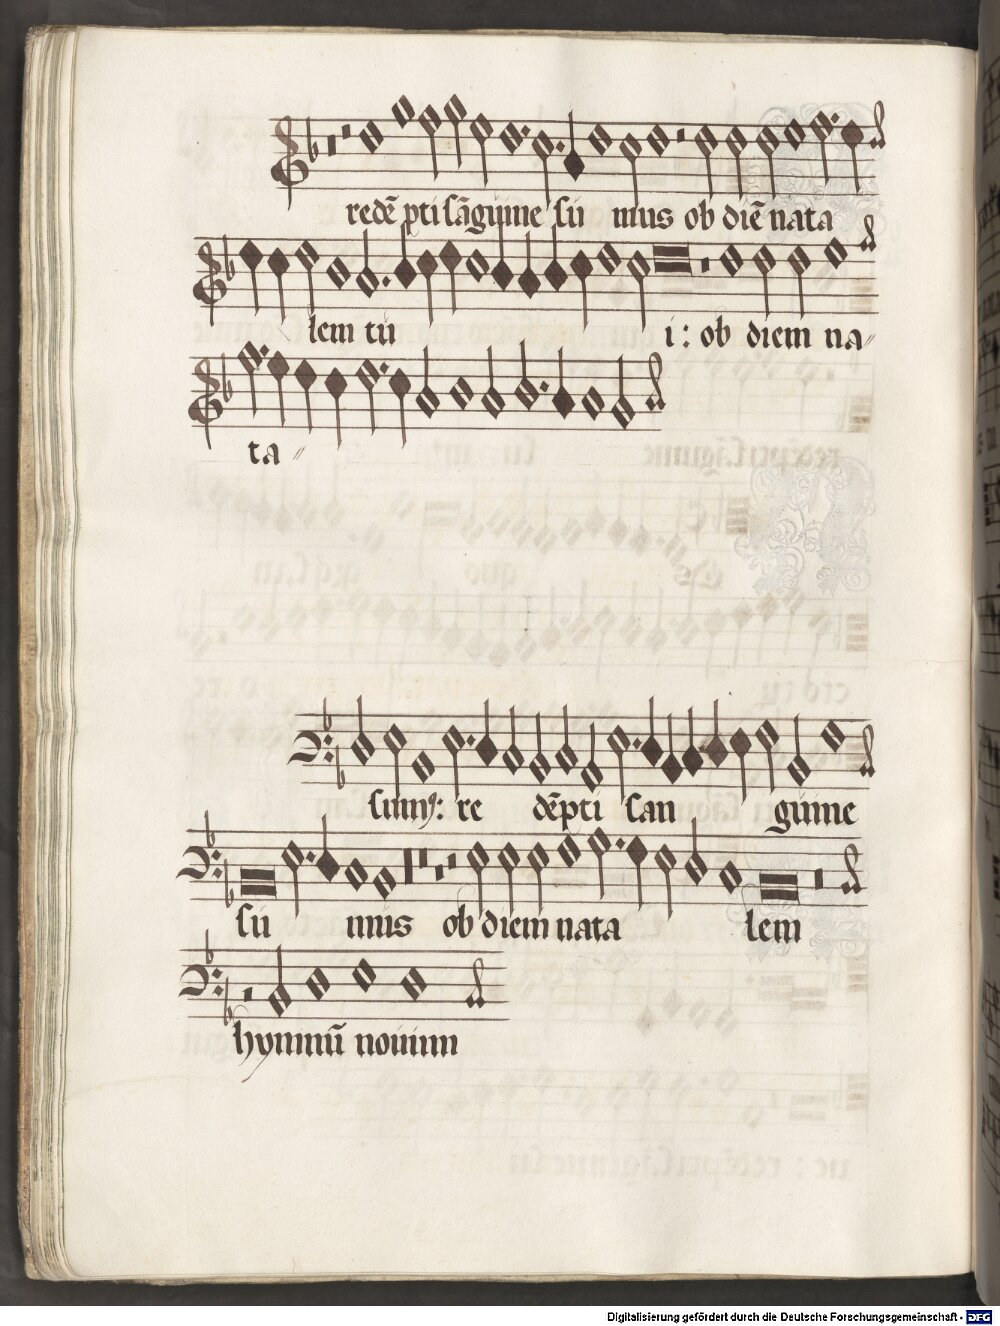 redē pti sāguine su mus ob diē nata
lem tu i: ob diem na〃
ta〃
sumꝰ: re dēpti san guine
su mus ob diem nata lem
hymnū nouum
Digitalisierung gefördert durch die Deutsche Forschungsgemeinschaft - DFG